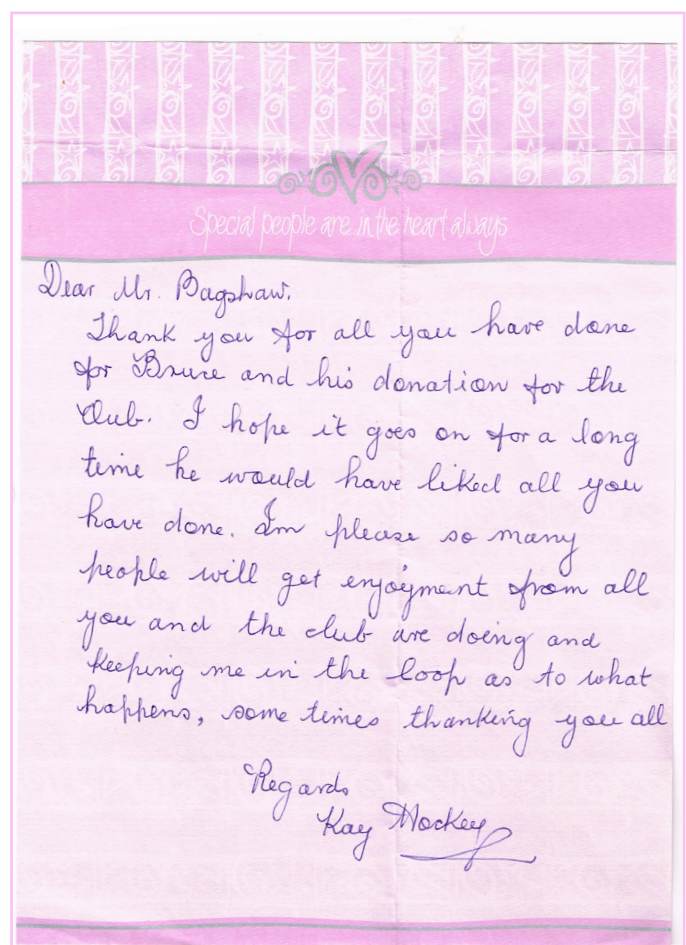 Special people are in the heart always
Dear Mr. Bagshaw,
Thank you for all you have done
for Bruce and his donation for the
Club. I hope it goes on for a long
time he would have liked all you
have done. I am please so many
people will get enjoyment from all
you and the club are doing and
keeping me in the loop as to what
happens, some times thanking you all
Regards
Kay Hockey